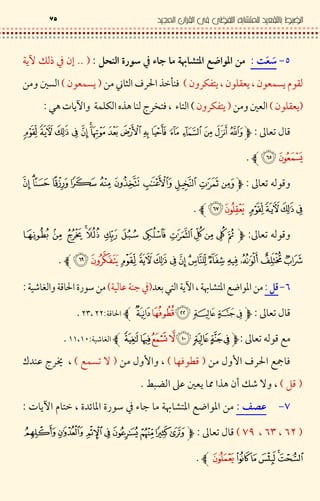 الضبط بالتقعيد للمتشابه اللفظي في القرآن المجيد ٧٥
٥- سَعَتَ : من المواضع المتشابهة ما جاء في سورة النحل : ( .. إن في ذلك لآية
لقوم يسمعون ، يعقلون ، يتفكرون ) فتأخذ الحرف الثاني من ( يسمعون ) السين ومن
(يعقلون ) العين ومن ( يتفكرون ) التاء ، فتخرج لنا هذه الكلمة والآيات هي :
قال تعالى : ﴿ وَٱللَّهُ أَنزَلَ مِنَ ٱلسَّمَآءِ مَآءً فَأَحْيَا بِهِ ٱلْأَرْضَ بَعْدَ مَوْتِهَآ إِنَّ فِى ذَٰلِكَ لَـَٔايَةً لِّقَوْمٍ
يَسْمَعُونَ ٦٥ ﴾ .
وقوله تعالى : ﴿ وَمِن ثَمَرَٰتِ ٱلنَّخِيلِ وَٱلْأَعْنَٰبِ تَتَّخِذُونَ مِنْهُ سَكَرًا وَرِزْقًا حَسَنًا إِنَّ
فِى ذَٰلِكَ لَـَٔايَةً لِّقَوْمٍ يَعْقِلُونَ ٦٧ ﴾ .
وقوله تعالى: ﴿ ثُمَّ كُلِى مِن كُلِّ ٱلثَّمَرَٰتِ فَٱسْلُكِى سُبُلَ رَبِّكِ ذُلُلًا يَخْرُجُ مِنۢ بُطُونِهَا
شَرَابٌ مُّخْتَلِفٌ أَلْوَٰنُهُۥ فِيهِ شِفَآءٌ لِّلنَّاسِ إِنَّ فِى ذَٰلِكَ لَـَٔايَةً لِّقَوْمٍ يَتَفَكَّرُونَ ٦٩ ﴾ .
٦- قل : من المواضع المتشابهة ، الآية التي بعد( في جنة عالية) من سورة الحاقة والغاشية :
قال تعالى : ﴿ فِى جَنَّةٍ عَالِيَةٍ ٢٢ قُطُوفُهَا دَانِيَةٌ ﴾ الحاقة: ٢٢ ، ٢٣ .
مع قوله تعالى : ﴿ فِى جَنَّةٍ عَالِيَةٍ ١٠ لَّا تَسْمَعُ فِيهَا لَٰغِيَةً ﴾ الغاشية: ١٠ ، ١١ .
فاجمع الحرف الأول من ( قطوفها ) ، والأول من ( لا تسمع ) ، يخرج عندك
( قل ) ، ولا شك أن هذا مما يعين على الضبط .
٧- عصف : من المواضع المتشابهة ما جاء في سورة المائدة ، ختام الآيات :
( ٦٢ ، ٦٣ ، ٧٩ ) قال تعالى : ﴿ وَتَرَىٰ كَثِيرًا مِّنْهُمْ يُسَٰرِعُونَ فِى ٱلْإِثْمِ وَٱلْعُدْوَٰنِ وَأَكْلِهِمُ
ٱلسُّحْتَ لَبِئْسَ مَا كَانُوا۟ يَعْمَلُونَ ﴾ .